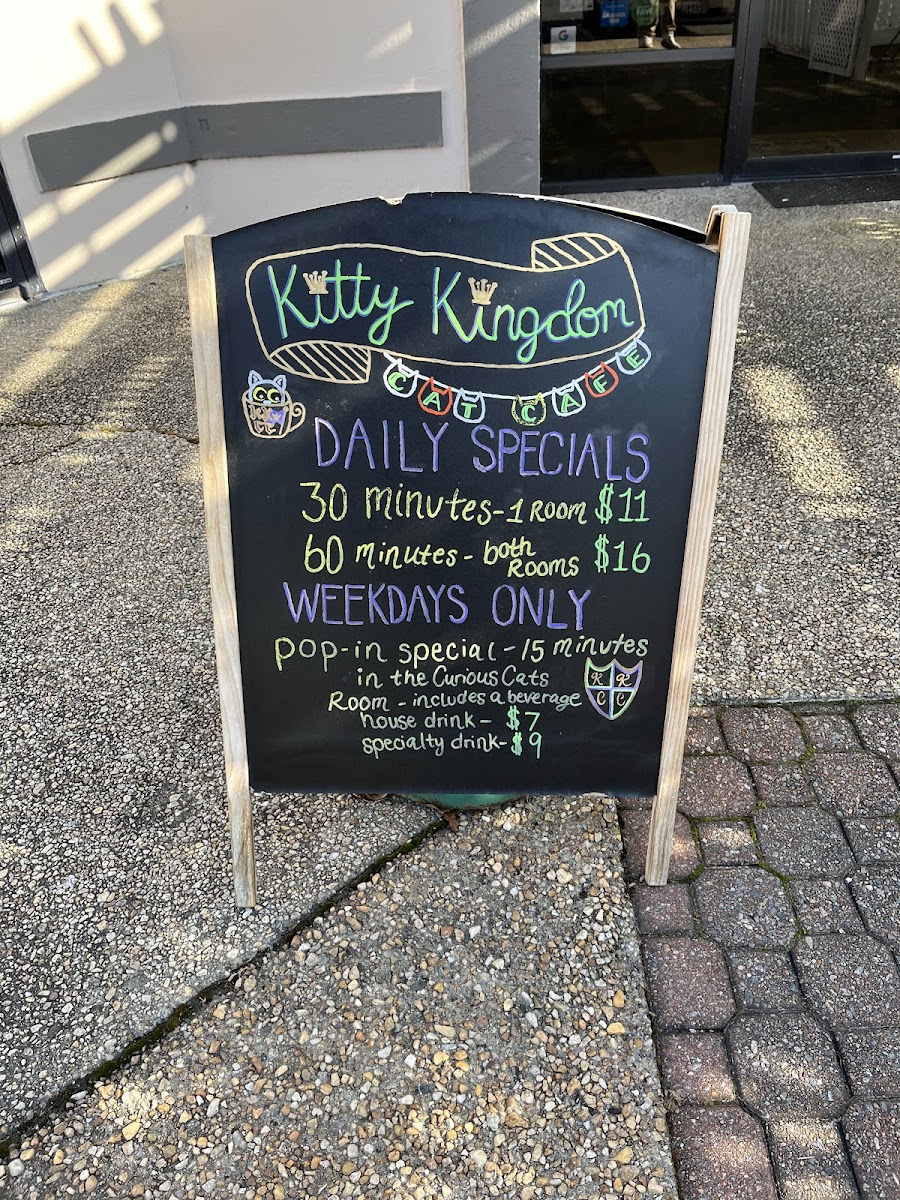 Kitty Kingdom
CAT CAFE
DAILY SPECIALS
30 minutes - 1 Room $11
60 minutes - both Rooms $16
WEEKDAYS ONLY
pop-in special - 15 minutes
in the Curious Cats
Room - includes a beverage
house drink - $7
specialty drink - $9
K K
C C
G